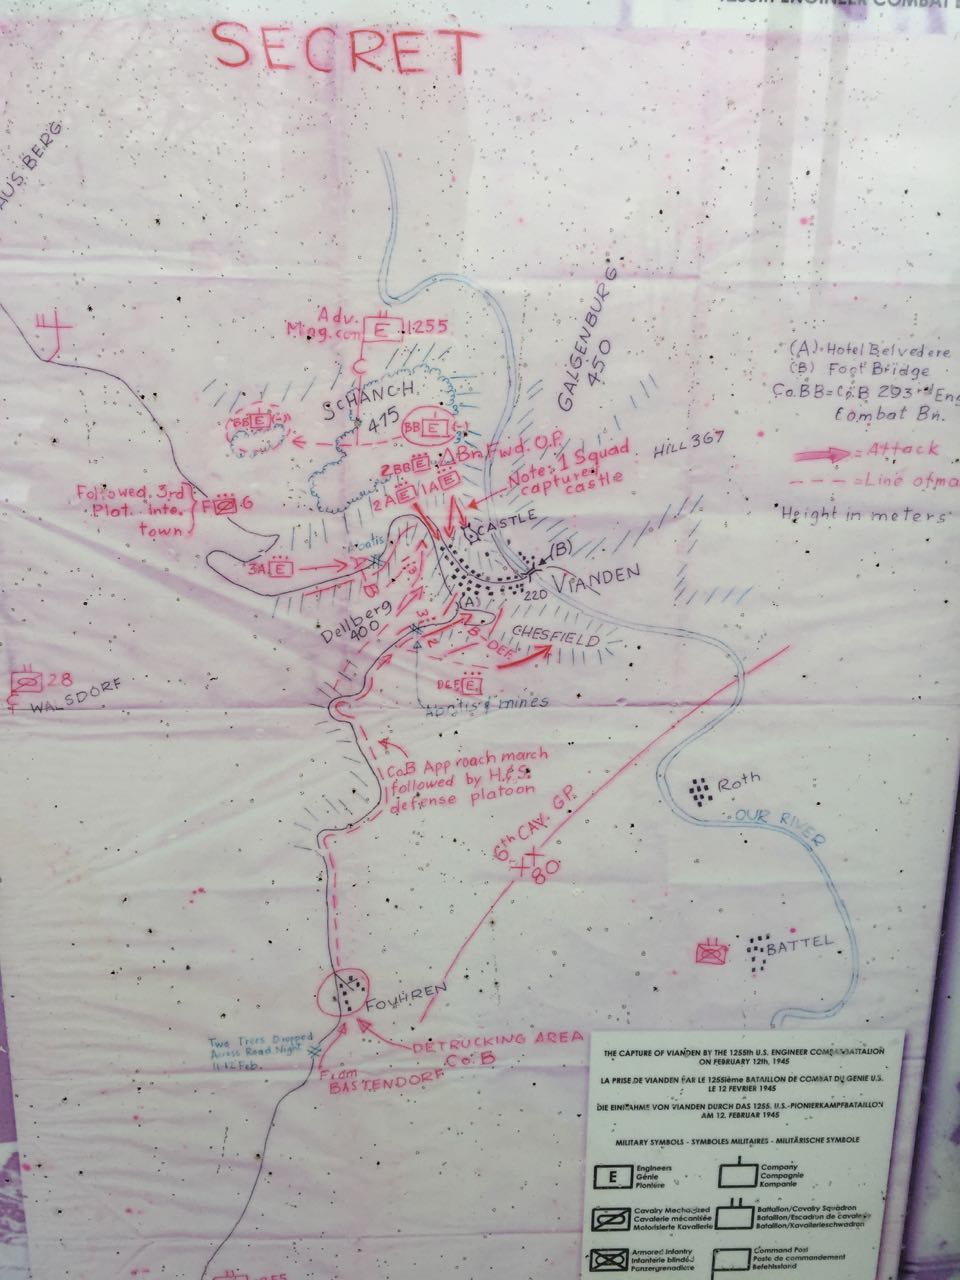 1255th ENGINEER COMBAT
SECRET
AUS BERG
Adv.
Ming. con
E
1255
SCHANCH
475
GALGENBURG
450
(A) = Hotel Belvedere
(B) Foot Bridge
Co.BB = Co.B 293rd Eng
Combat Bn.
= Attack
= Line of ma
Height in meters
BB E (-)
BB E (-)
2BB
Bn. Fwd. O.P.
2A E
1A E
Note: 1 Squad
captured
castle
HILL 367
Followed 3rd
Plat. into
town
F
6
CASTLE
3A E
(B)
VIANDEN
220
(A)
Dellberg
400
CHESFIELD
DEF.
DEF E
Abatis & mines
28
WALSDORF
Co.B Approach march
followed by H&S.
defense platoon
6th CAV. GP.
80
Roth
OUR RIVER
BATTEL
FOUHREN
Two Trees Dropped
Across Road Night
11-12 Feb.
DETRUCKING AREA
Co. B
From
BASTENDORF
THE CAPTURE OF VIANDEN BY THE 1255th U.S. ENGINEER COMBAT BATTALION
ON FEBRUARY 12th, 1945
LA PRISE DE VIANDEN PAR LE 1255ième BATAILLON DE COMBAT DU GENIE U.S.
LE 12 FEVRIER 1945
DIE EINNAHME VON VIANDEN DURCH DAS 1255. U.S.-PIONIERKAMPFBATAILLON
AM 12. FEBRUAR 1945
MILITARY SYMBOLS - SYMBOLES MILITAIRES - MILITÄRISCHE SYMBOLE
E
Engineers
Génie
Pioniere
Company
Compagnie
Kompanie
Cavalry Mechanized
Cavalerie mécanisée
Motorisierte Kavallerie
Battalion/Cavalry Squadron
Bataillon/Escadron de cavalerie
Bataillon/Kavallerieschwadron
Armored Infantry
Infanterie blindée
Panzergrenadiere
Command Post
Poste de commandement
Befehlsstand